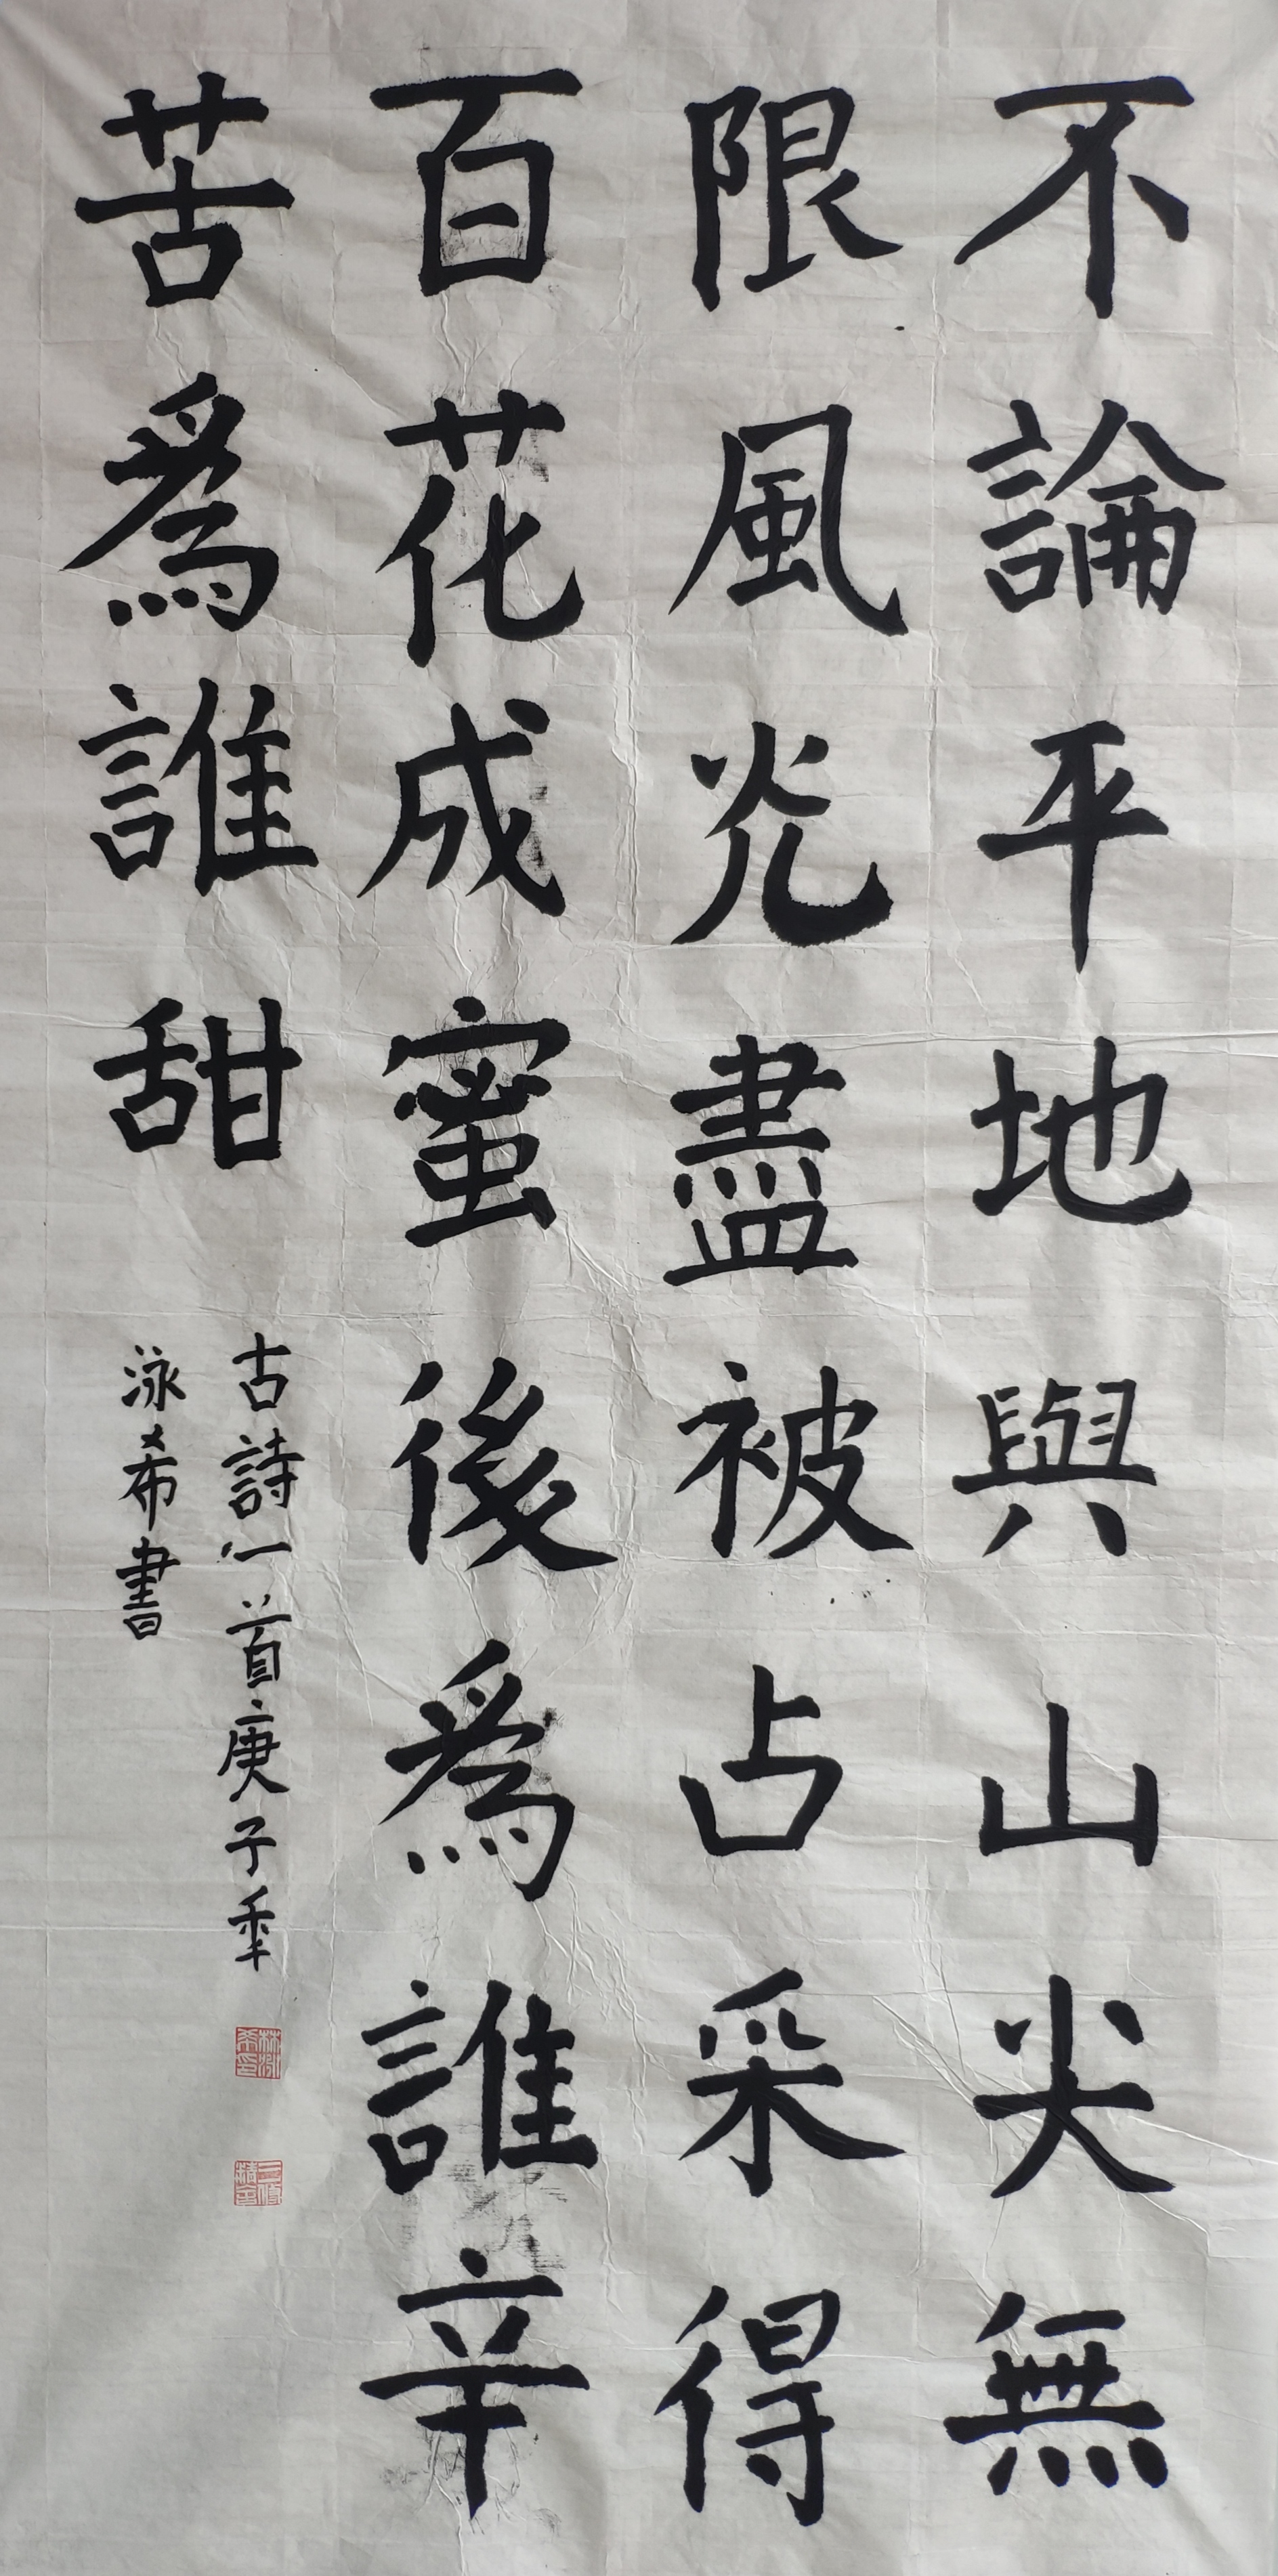 不論平地與山尖無
限風光盡被占采得
百花成蜜後爲誰辛
苦爲誰甜
古詩一首庚子年
泳希書